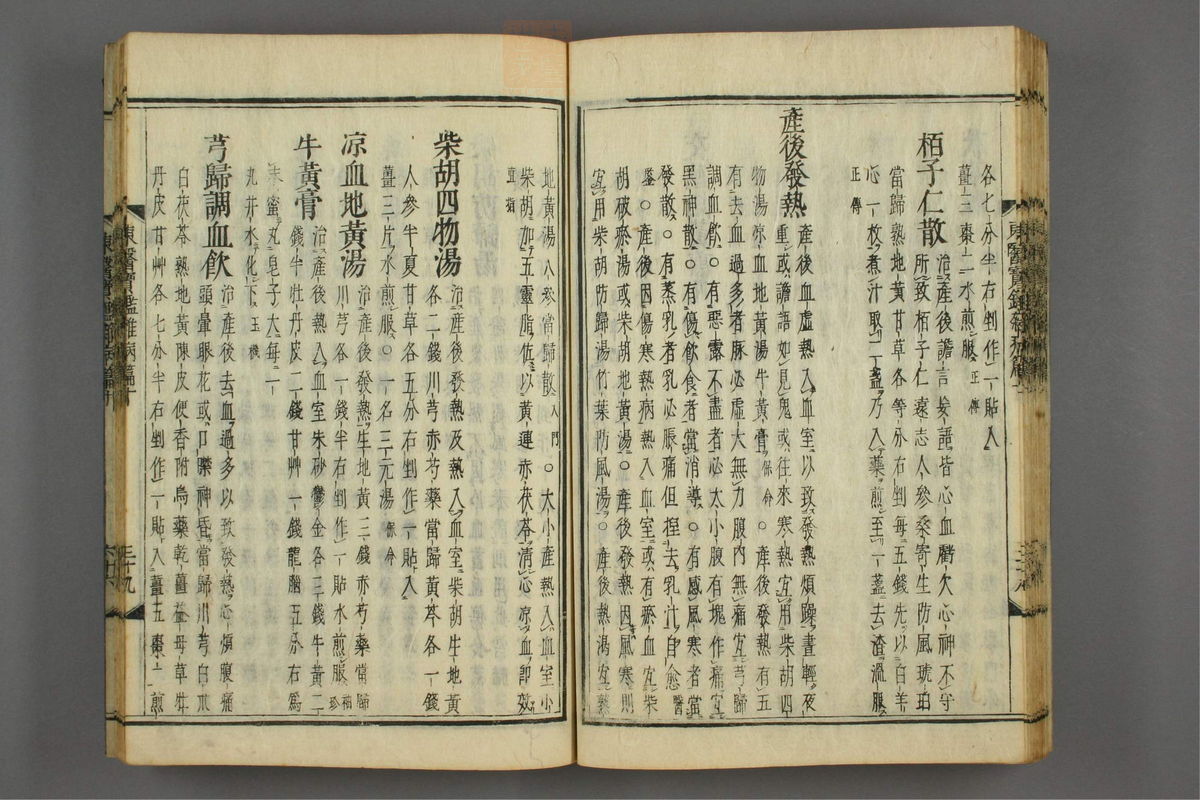 各七分半右剉作一貼入
薑三棗二水煎服 正傳
栢子仁散 治產後譫言妄語皆心血虧欠心神不守
所致栢子仁遠志人參桑寄生防風琥珀
當歸熟地黃甘草各等分右剉每五錢先以白羊
心一枚煮汁取二盞乃入藥煎至一盞去渣溫服
正傳
產後發熱 產後血虛熱入血室以致發熱煩躁晝輕夜
重或譫語如見鬼或往來寒熱宜用柴胡四
物湯涼血地黃湯牛黃膏 保命 ○產後發熱有五
有去血過多者脉必虛大無力腹內無痛宜芎歸
調血飮○有惡露不盡者必大小腹有塊作痛宜
黑神散○有傷飮食者當消導○有感風寒者當
發散○有蒸乳者乳必脹痛但捏去乳汁自愈 醫
鑒 ○產後因傷寒熱病熱入血室或有瘀血宜柴
胡破瘀湯或柴胡地黃湯○產後發熱因風寒則
宜用柴胡防歸湯竹葉防風湯○產後熱瀉宜熟
地黃湯人參當歸散 入門 ○大小產熱入血室小
柴胡加五靈脂佐以黃連赤茯苓清心凉血卽效
直指
柴胡四物湯 治產後發熱及熱入血室柴胡生地黃
各二錢川芎赤芍藥當歸黃芩各一錢
人參半夏甘草各五分右剉作一貼入
薑三片水煎服○一名三元湯 保命
凉血地黃湯 治產後發熱生地黃三錢赤芍藥當歸
川芎各一錢半右剉作一貼水煎服 袖珍
牛黃膏 治產後熱入血室朱砂鬱金各三錢牛黃二
錢半牡丹皮二錢甘艸一錢龍腦五分右爲
末蜜丸皂子大每一
丸井水化下 玉機
芎歸調血飮 治產後去血過多以致發熱心煩腹痛
頭暈眼花或口噤神昏當歸川芎白朮
白茯苓熟地黃陳皮便香附烏藥乾薑益母草牡
丹皮甘艸各七分半右剉作一貼入薑五棗二煎
東醫寶鑑雜病篇十
三十九